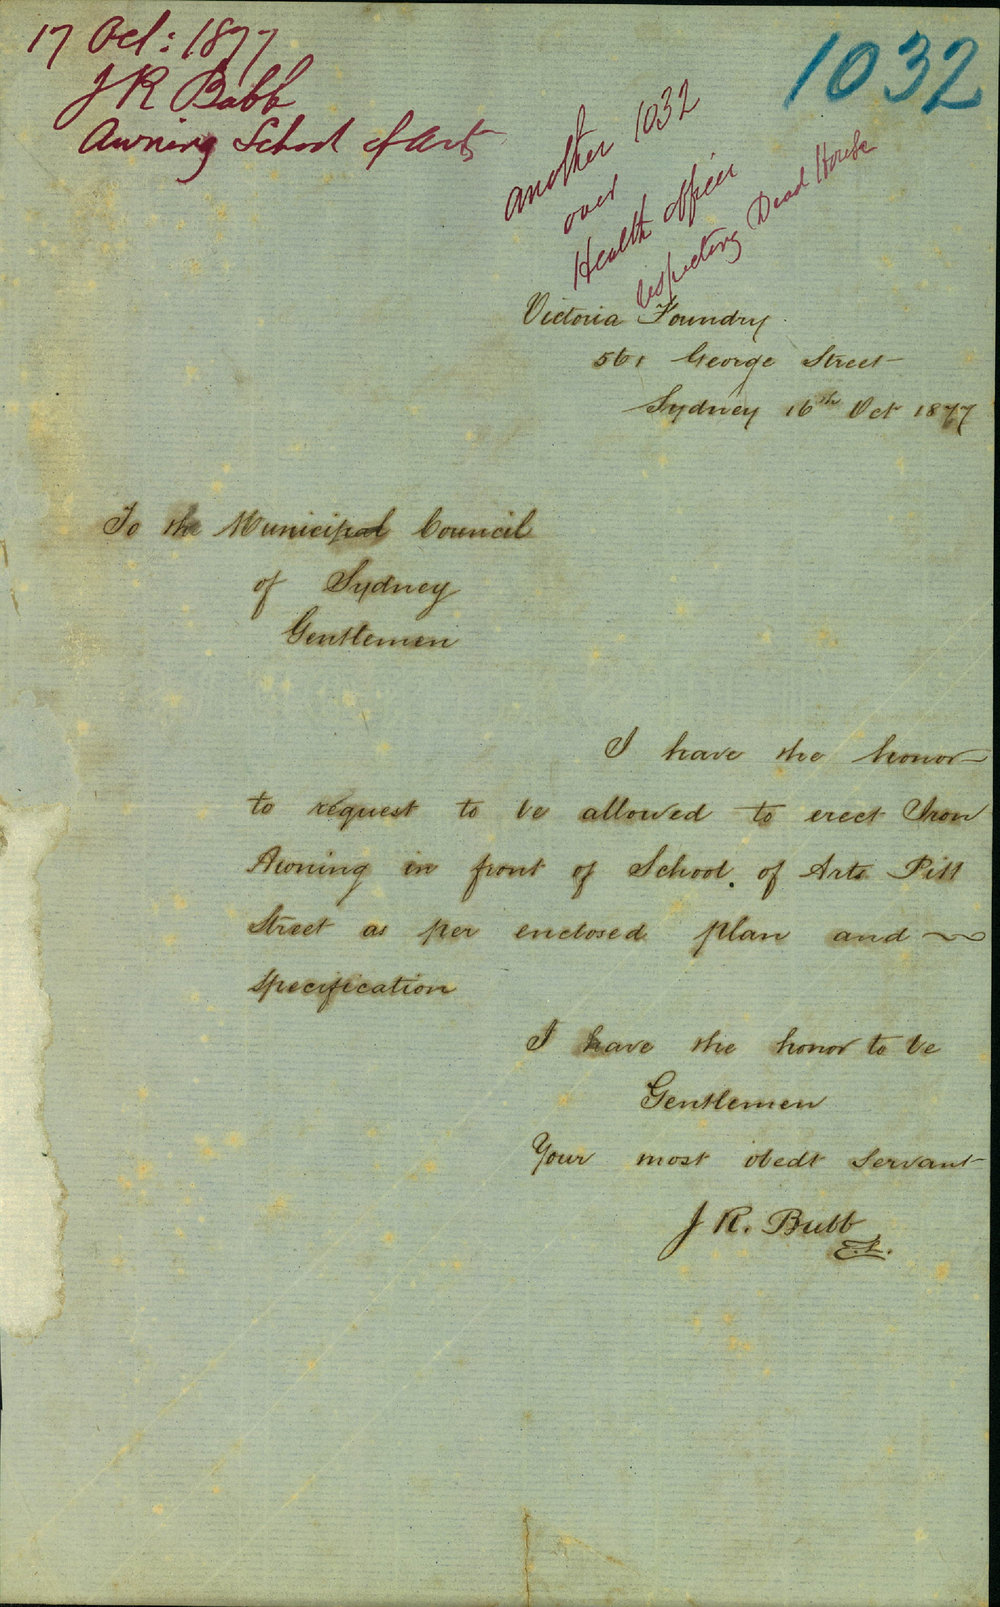 17 Oct: 1877
J R Bubb
Awning School of Arts
1032
another 1032
over
Health Officer
respecting Dead House
Victoria Foundry
561 George Street
Sydney 16th Oct 1877
To the Municipal Council
of Sydney
Gentlemen
I have the honor
to request to be allowed to erect Iron
Awning in front of School of Arts Pitt
Street as per enclosed plan and
specification
I have the honor to be
Gentlemen
Your most obedt servant
J R. Bubb